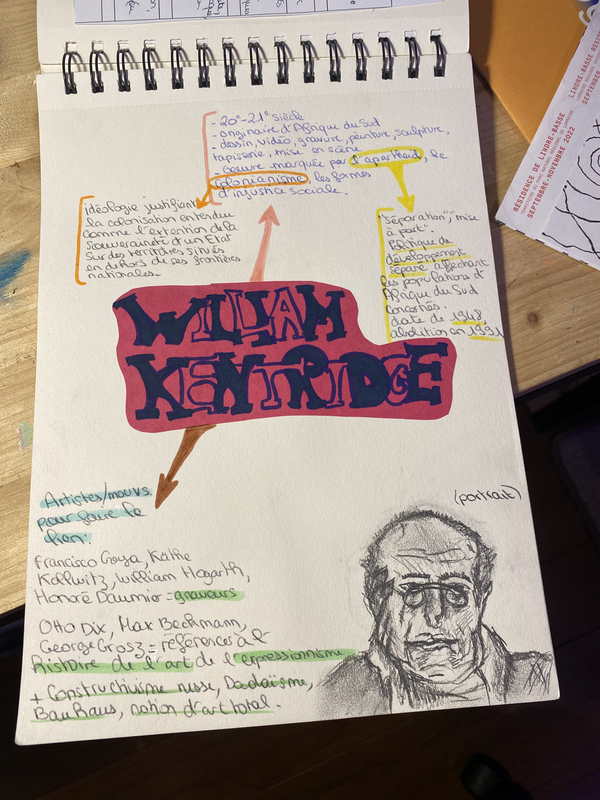 - 20e-21e siècle
- originaire d'Afrique du Sud
- dessin, vidéo, gravure, peinture, sculpture,
tapisserie, mise en scène
- Oeuvre marquée par l'apartheid, le
colonianisme, les formes
d'injustice sociale.
idéologie justifiant
la colonisation entendu
comme l'extention de la
souveraineté d'un Etat
sur des territoires situés
en dehors de ses frontières
nationales.
"séparation", "mise
à part".
Politique de
développement
séparé affectant
les populations d'
Afrique du Sud
concernés.
date de 1948
abolition en 1991
WILLIAM
KENTRIDGE
Artistes/mouvs.
pour faire le
lien:
Francisco Goya, Käthe
Kollwitz, William Hogarth,
Honoré Daumier = graveurs
Otto Dix, Max Beckmann,
George Grosz = références à l'
histoire de l'art de l'expressionnisme
+ Constructivisme russe, Dadaïsme,
BauHaus, notion d'art total.
(portrait)
RÉSIDENCE DE LINDRE-BASSE
SEPTEMBRE-NOVEMBRE 2022